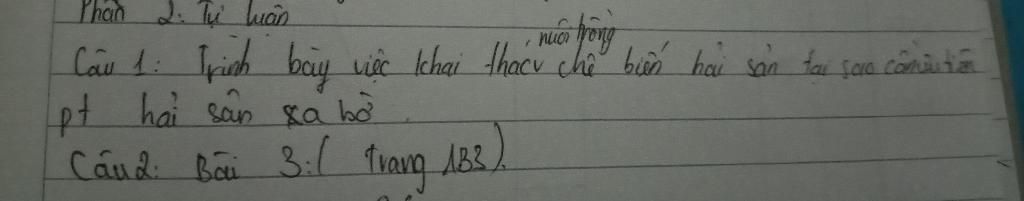 Phần 2: Tự luận
Câu 1: Trình bày việc khai thác, nuôi trồng chế biến hải sản tại sao cần ưu tiên
pt hải sản xa bờ.
Câu 2: Bài 3: ( trang 133).